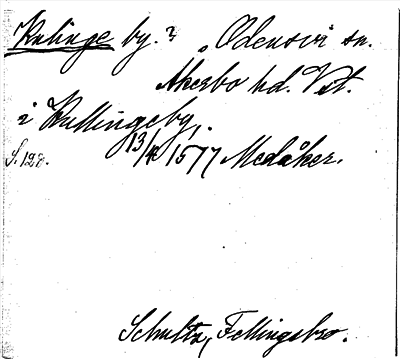 Kulinge by. ? Odensvi sn.
Åkerbo hd. Vstm.
i Kullingeby,
S. 128. 13/4 1577 Medåker.
Schultz, Fellingsbro.